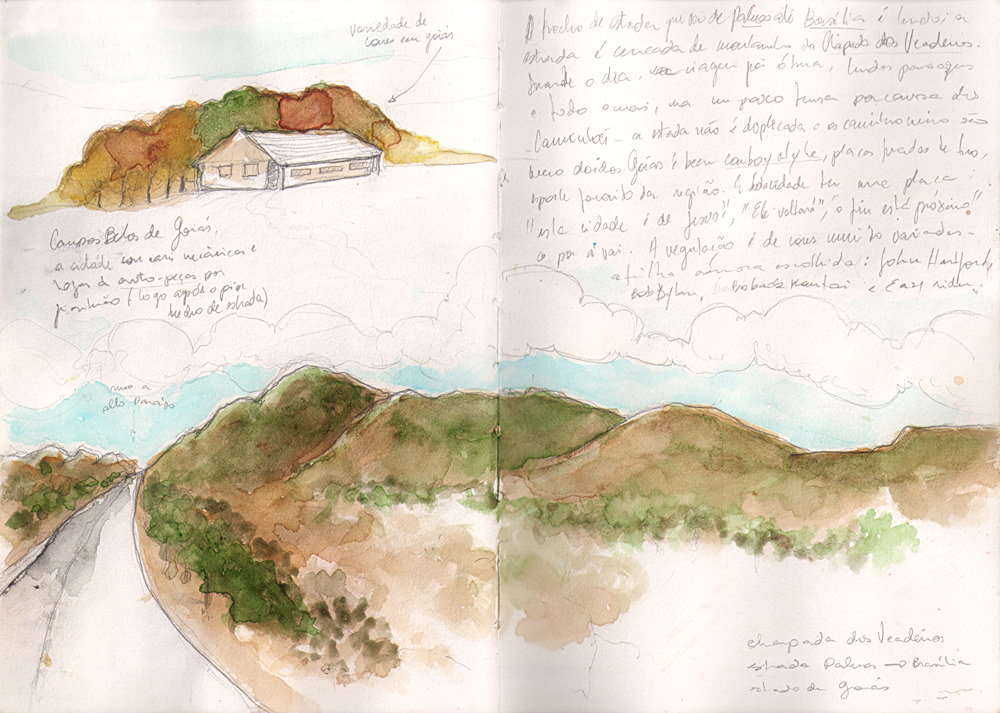 variedade de
cores em goiás
Campos Belos de Goiás,
a cidade com mais mecânicos e
lojas de auto-peças por
(logo após o pior
trecho de estrada)
rumo a
alto paraíso
O trecho de estrada que vai de Palmas até Brasília é lindo, a
estrada é cercada de montanhas da Chapada dos Veadeiros.
Durante o dia, a viagem foi ótima, lindas paisagens
e tudo o mais, mas um pouco tensa por causa dos
caminhões - a estrada não é duplicada e os caminhoneiros são
meio doidos. Goiás é bem cowboy style, placas furadas de tiro,
esporte favorito da região. E a cidade tem uma placa:
"esta cidade é de Jesus", "Ele voltará", "o fim está próximo"
e por aí vai. A vegetação é de cores muito variadas -
a trilha sonora escolhida: John Hartford,
Bob Dylan, e Easy rider.
chapada dos Veadeiros
estrada Palmas → Brasília
estado de Goiás